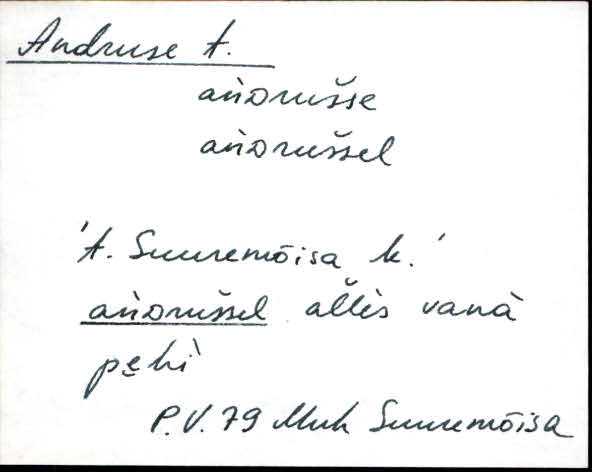 Andruse t.
aǹᴅrušse
aǹᴅrušsel
't. Suuremõisa k.'
aǹᴅrušsel aĺlès vanà
pe̮hì
P.V. 79 Muh Suuremõisa